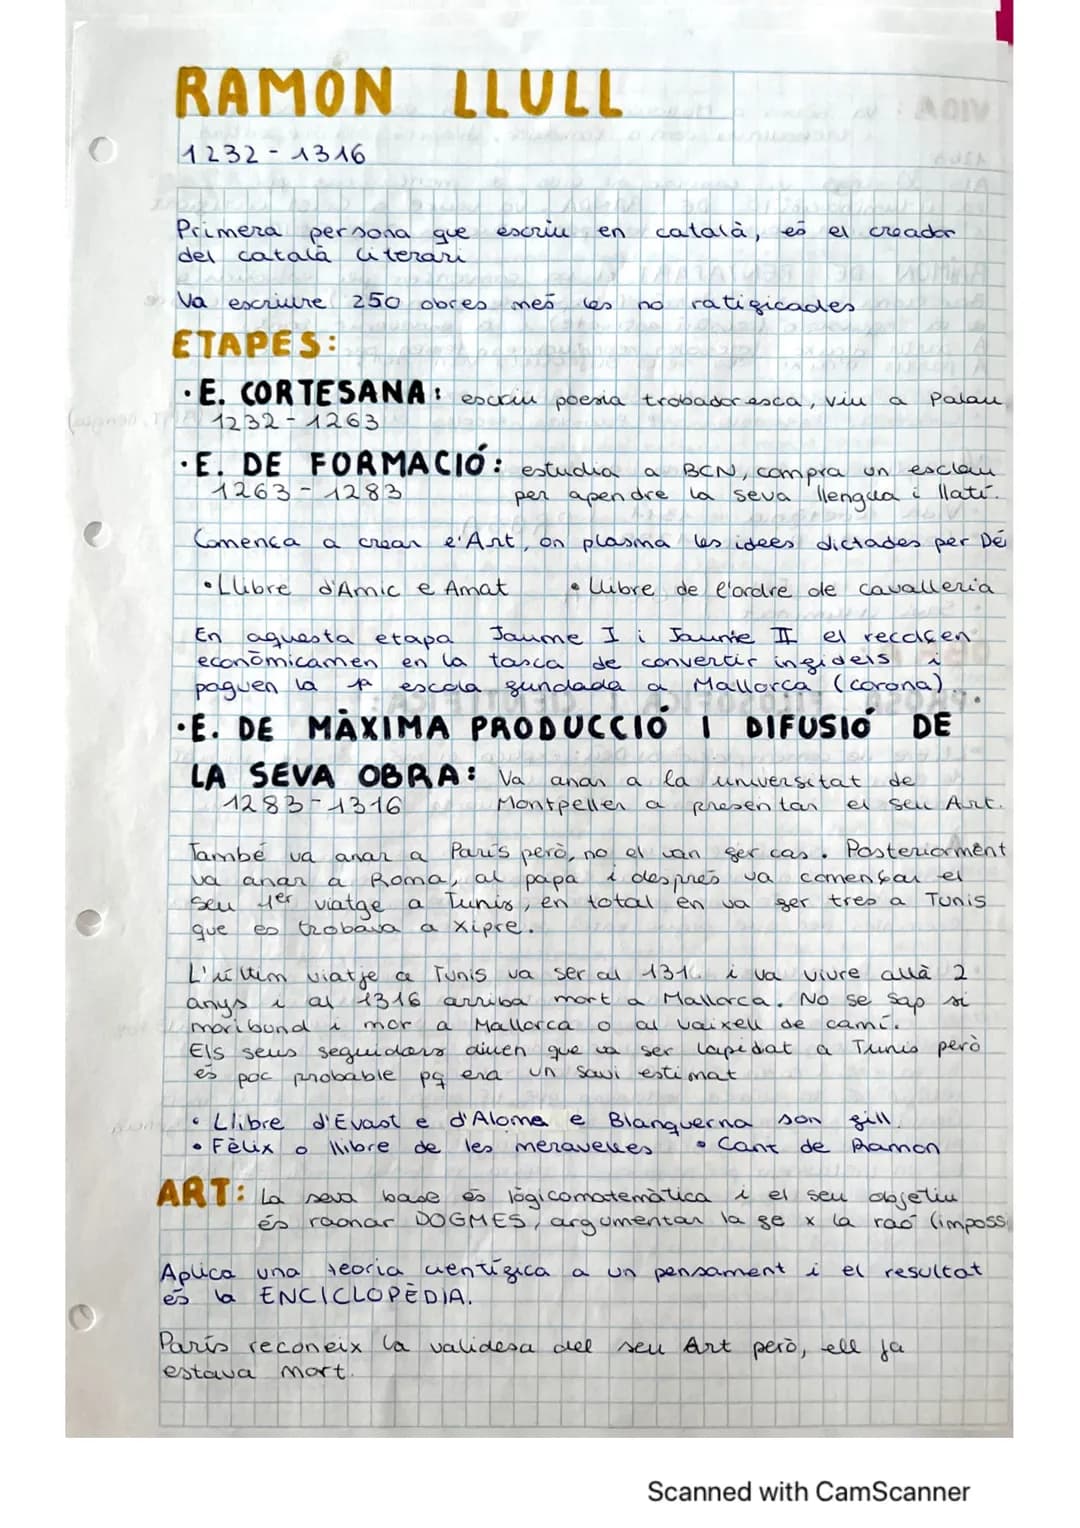 RAMON LLULL
1232 - 1316
Primera persona que escriu en català, és el creador
del català literari
Va escriure 250 obres més les no ratificades
ETAPES:
· E. CORTESANA: escriu poesia trobadoresca, viu a Palau
1232 - 1263
· E. DE FORMACIÓ: estudia a BCN, compra un esclau
1263 - 1283 per apendre la seva llengua i llatí.
Comença a crear l'Art, on plasma les idees dictades per Dé
• Llibre d'Amic e Amat • Llibre de l'ordre de cavalleria
En aquesta etapa Jaume I i Jaume II el recolçen
econòmicamen en la tasca de convertir infidels i
paguen la 1ª escola fundada a Mallorca (corona).
· E. DE MÀXIMA PRODUCCIÓ I DIFUSIÓ DE
LA SEVA OBRA: Va anar a la universitat de
1283 - 1316 Montpeller a presentar el seu Art.
També va anar a París però, no el van fer cas. Posteriorment
va anar a Roma, al papa i després va començar el
seu 1er viatge a Tunis, en total en va fer tres a Tunis
que es trobava a Xipre.
L'últim viatje a Tunis va ser al i va viure allà 2
anys i al 1316 arriba mort a Mallorca. No se sap si
moribund i mor a Mallorca o al vaixell de camí.
Els seus seguidors diuen que va ser lapidat a Tunis però
és poc probable pq era un savi estimat
• Llibre d'Evast e d'Aloma e Blanquerna son fill.
• Fèlix o llibre de les meravelles • Cant de Ramon
ART: La seva base és lògicomatemàtica i el seu objetiu
és raonar DOGMES, argumentar la fe x la raó (imposs
Aplica una teoria científica a un pensament i el resultat
és la ENCICLOPÈDIA.
París reconeix la validesa del seu Art però, ell ja
estava mort.
Scanned with CamScanner